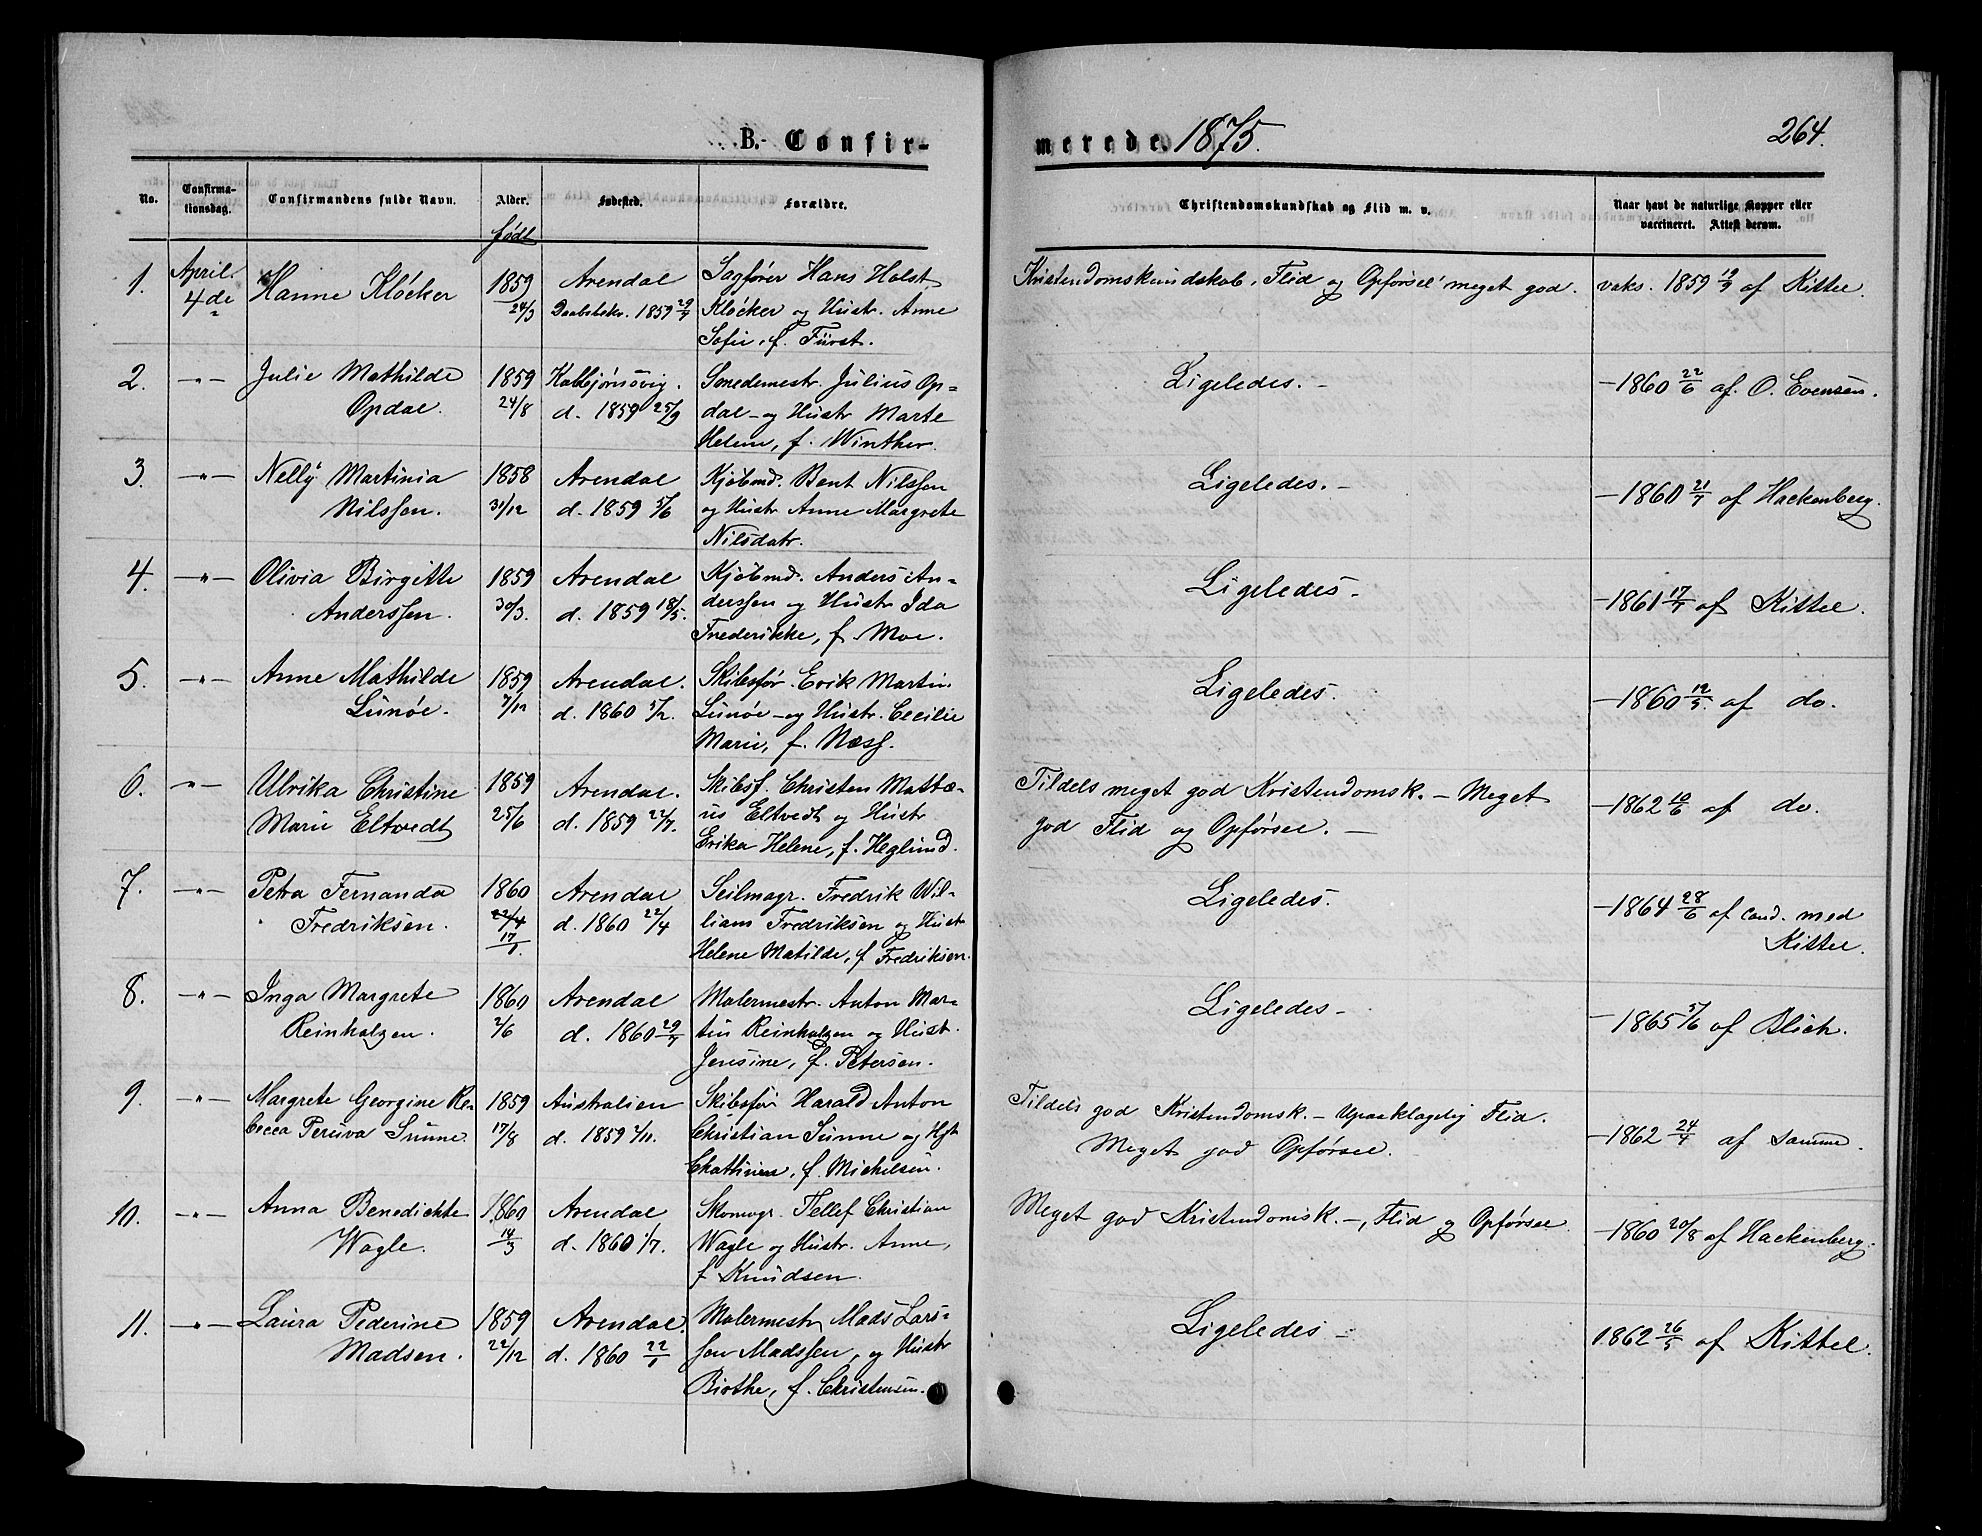 B. Confirmerede. 1875. 264.
No. Confirmationsdag. Confirmandens fulde Navn. Alder. født Fødested. Forældre. Christendomskundskab og Flid m. v. Naar havt de naturlige Kopper eller vaccineret. Attest derom.
1. April 4de Hanne Kløcker 1859 24/3 Arendal Sagfører Hans Holst Kristendomskundskab, Flid og Opførsel meget god. vaks. 1859 19/9 af Kittel.
Daabsbekr. 1859 29/7 Kløcker og Hustr. Anne
Sofie, f. Fürst.
2. -"- Julie Mathilde 1859 Kolbjørnsvig. Smedemestr. Julius Op- Ligeledes. - - 1860 22/6 af O. Evensen.
Opdal. 24/8 d. 1859 25/9 dal - og Hustr Marte
Helene, f. Winther.
3. -"- Nelly Martinia 1858 Arendal Kjøbmd. Bent Nilssen Ligeledes. - - 1860 21/7 af Hackenberg.
Nilssen. 31/12 d. 1859 5/6 og Hustr Anne Margrete
Nilsdatr.
4. -"- Olivia Birgitte 1859 Arendal Kjøbmd. Anders An- Ligeledes - - 1861 17/7 af Kittel.
Anderssen. 30/3. d. 1859 18/5. derssen og Hustr Ida
Frederikke, f. Moe.
5. -"- Anne Mathilde 1859 Arendal. Skibsfør. Erik Martin Ligeledes. - 1860 19/5. af do.
Lunøe. 7/12 d. 1860 5/2. Lunøe - og Hustr. Cecilie
Marie, f. Næss.
6. -"- Ulrika Christine 1859 Arendal. Skibsf. Christen Mattæ- Tildels meget god Kristendomsk. - Meget - 1862 10/6 af do.
Marie Eltvedt 25/6 d. 1859 24/7. us Eltvedt og Hustr god Flid og Opførsel. -
Erika Helene, f. Heglund.
7. -"- Petra Fernanda 1860 Arendal Seilmagr. Fredrik Wil- Ligeledes. - 1864 28/6 af cand. med
Fredriksen. 22/4 d. 1860 22/4 liam Fredriksen og Hust Kittel.
17/1. Helene Matilde, f Fredriksen.
8. -"- Inga Margrete 1860 Arendal Malermestr. Anton Mar- Ligeledes - - 1865 5/6 af Blich.
Reinholzen. 2/6 d. 1860 29/7 tin Reinholzen og Hust.
Jensine, f. Petersen.
9. -"- Margrete Georgine Re- 1859 Australien Skibsfør Harald Anton Tildels god Kristendomsk. - Upaaklagelig Flid. - 1862 24/4 af samme.
becca Peruva Sunne. 17/8 d. 1859 2/11. Christian Sunne og Hst Meget god Opførsel.
f. Michelsen.
10. -"- Anna Benedichte 1860 Arendal Skomagr. Tellef Christian Meget god Kristendomsk. -, Flid og Opførsel. - 1860 20/8 af Hackenberg.
Wagle. 14/3 d. 1860 1/7. Wagle og Hustr. Anne,
f Knudsen.
11. -"- Laura Pederine 1859 Arendal. Malermestr Mads Lars- Ligeledes - 1862 26/5 af Kittel.
Madsen. 22/12 d. 1860 22/1 sen Madssen, og Hustr
Birthe, f. Christensen.